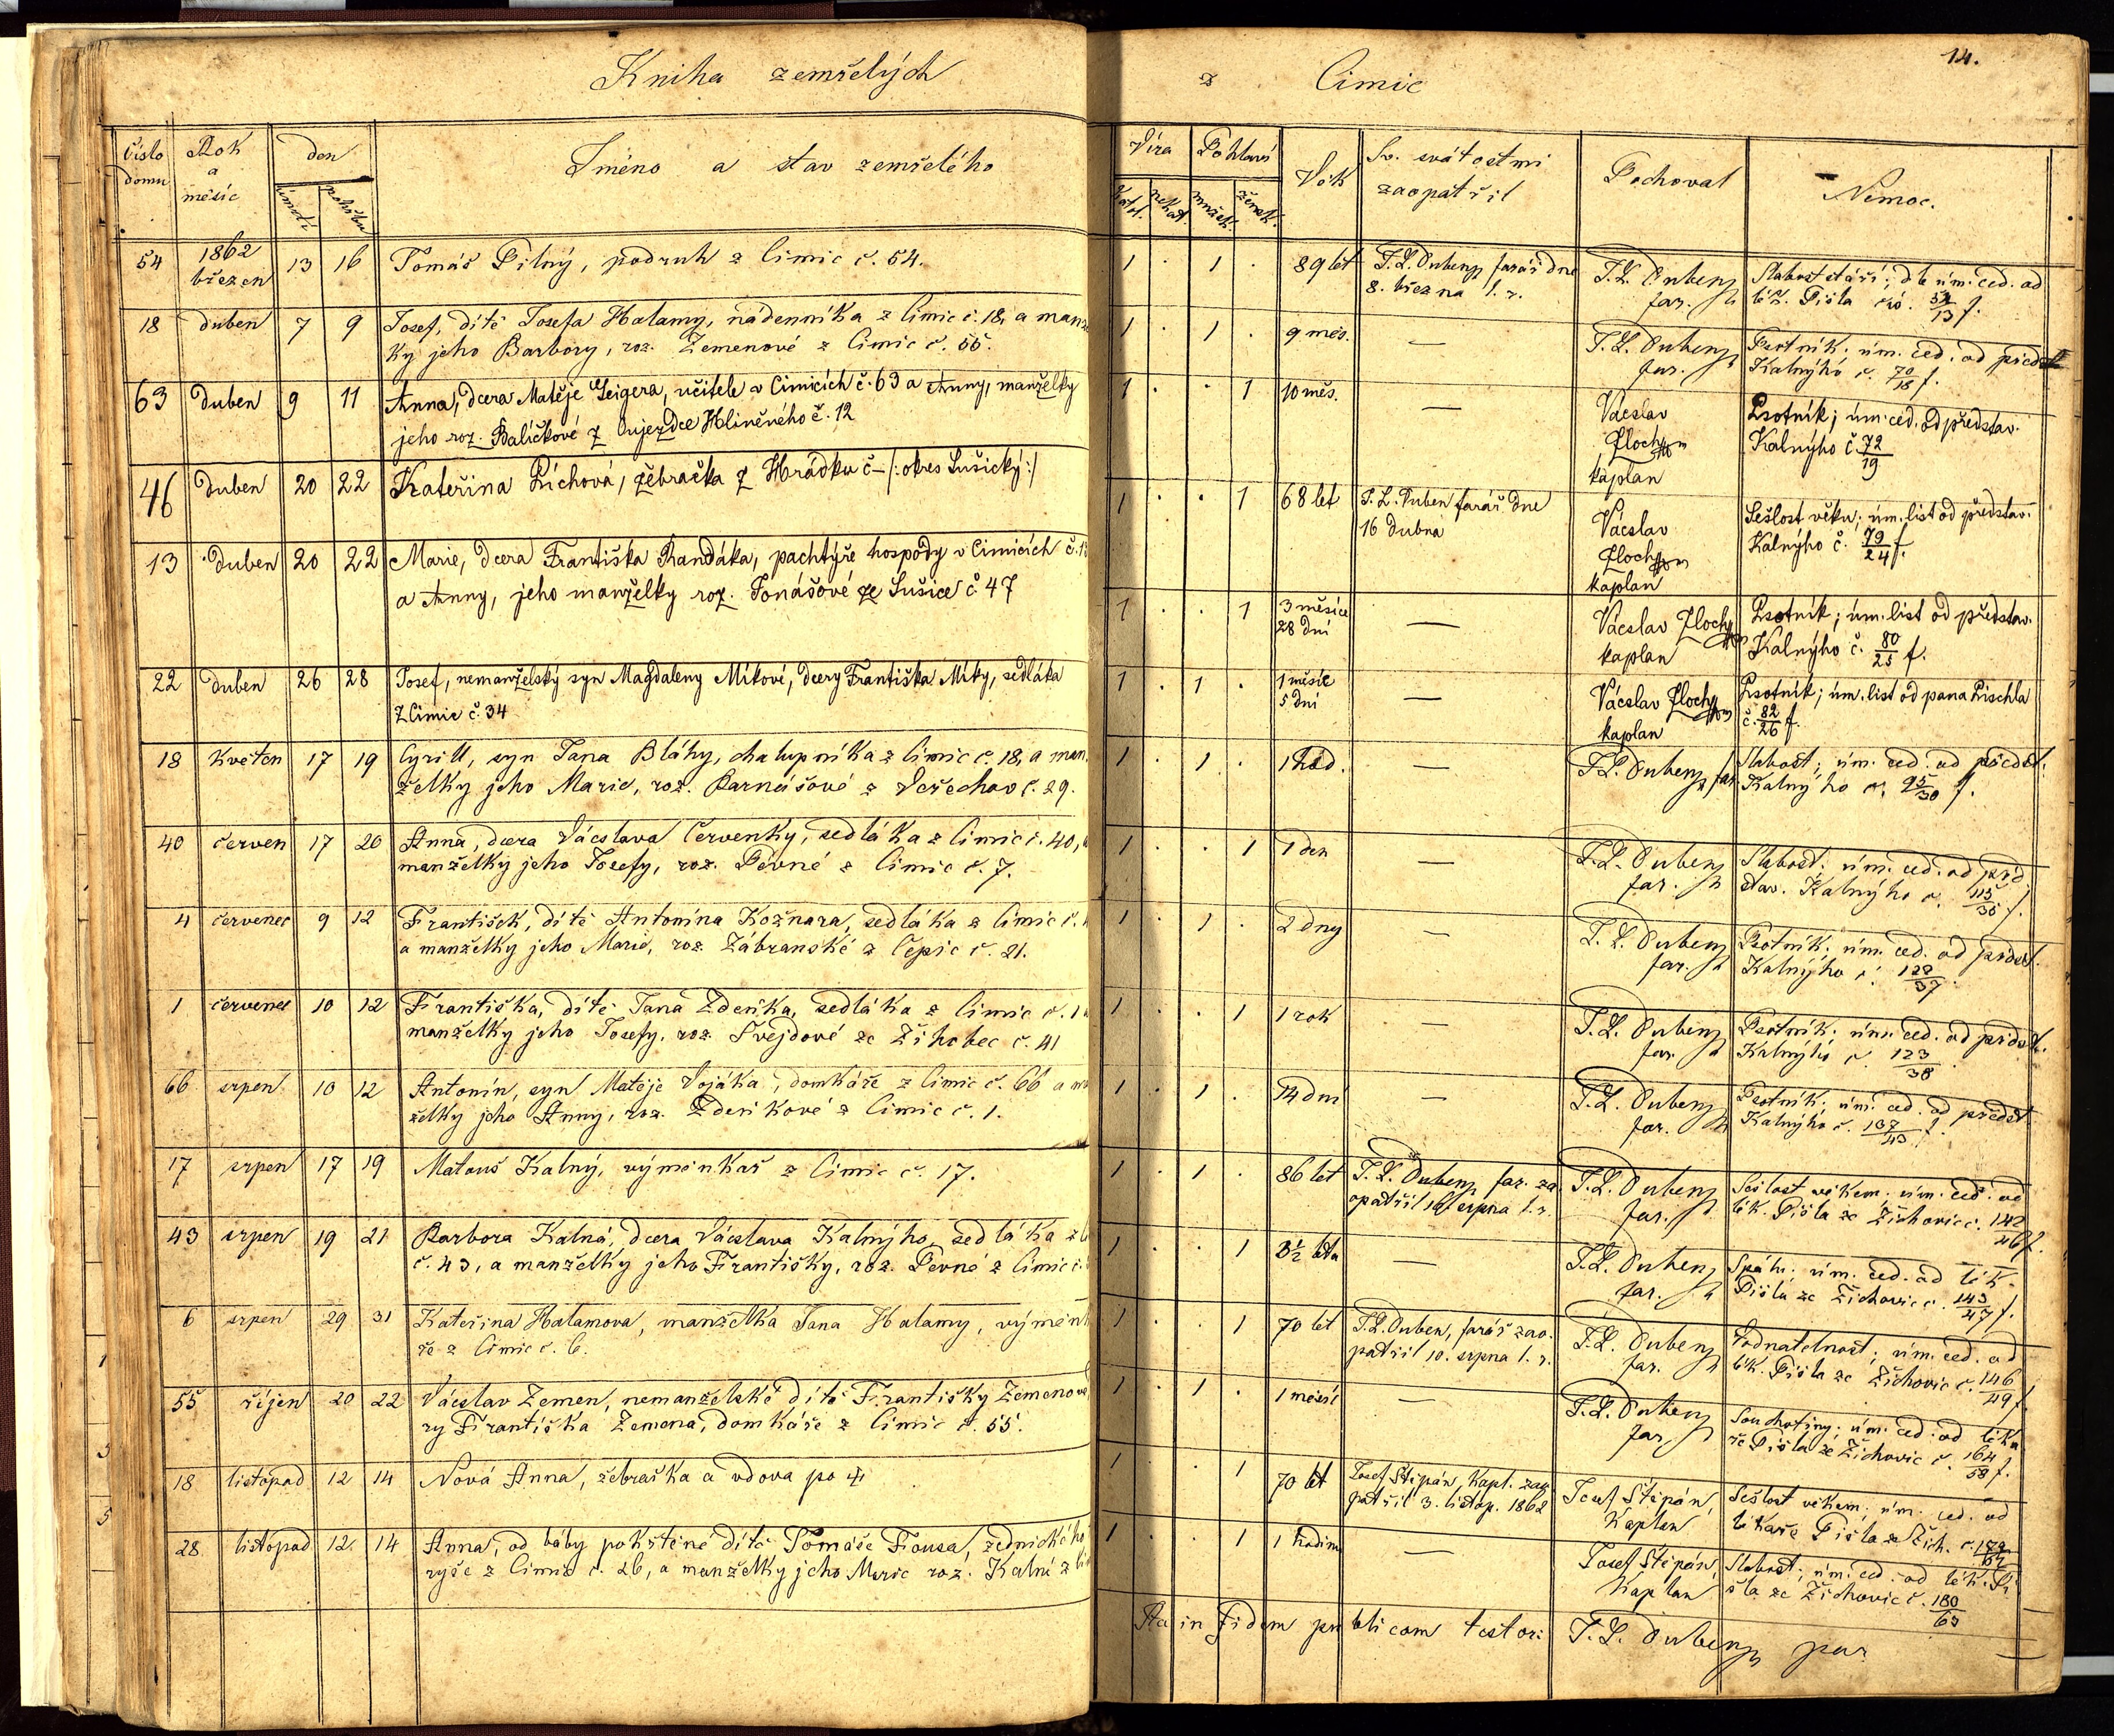 Kniha zemřelých
z Cimic
14.
Číslo domu
Rok a měsíc
den
úmrtí
pohřbu
Jméno a stav zemřelého
Víra
katol.
nekat.
Pohlaví
mužsk.
žensk.
Věk
Sv. svátostmi zaopatřil
Pochoval
Nemoc.
54 1862 březen 13 16 Tomáš Pilný, podruh z Cimic č. 54.
1 . 1 . 89 let J. L. Duben, farář dne
8. března l. r.
J. L. Duben
far.
Slabost stáří; dle úm. ced. od
lék. Pišla čís. 52/13 f.
18 duben 7 9 Josef, dítě Josefa Halamy, nádenníka z Cimic č. 18, a manžel
ky jeho Barbory, roz. Zemenové z Cimic č. 55.
1 . 1 . 9 měs. — J. L. Duben
far.
Psotník; úm. ced. od předst.
Kalnýho č. 70/18 f.
63 duben 9 11 Anna, dcera Matěje Geigera, učitele v Cimicích č. 63 a Anny, manželky
jeho roz. Baličkové z Oujezdce Hliněného č. 12
1 . . 1 10 měs. — Vácslav
Zloch
kaplan
Psotník; úm. ced. od představ.
Kalnýho č. 72/19
46 duben 20 22 Kateřina Píchová, žebračka z Hrádku č – /: okres Sušický :/
1 . . 1 68 let J. L. Duben farář dne
16 dubna
Vácslav
Zloch
kaplan
Sešlost věku; úm. list od představ.
Kalnýho č. 79/24 f.
13 duben 20 22 Marie, dcera Františka Randáka, pachtýře hospody v Cimicích č. 13
a Anny, jeho manželky roz. Tonášové ze Sušice č 47
1 . . 1 3 měsíce
28 dní
— Vácslav Zloch
kaplan
Psotník; úm. list od představ.
Kalnýho č. 80/25 f.
22 duben 26 28 Josef, nemanželský syn Magdaleny Míkové, dcery Františka Míky, sedláka
z Cimic č. 34
1 . 1 . 1 měsíc
5 dní
— Vácslav Zloch
kaplan
Psotník; úm. list od pana Pischla
č. 82/26 f.
18 květen 17 19 Cyrill, syn Jana Bláhy, chalupníka z Cimic č. 18, a man
želky jeho Marie, roz. Parnášové z Veřechov č. 29.
1 . 1 . 1 hod. — J. L. Duben far.
Slabost; úm. ced. od předst.
Kalnýho č. 95/30 f.
40 červen 17 20 Anna, dcera Vácslava Červenky, sedláka z Cimic č. 40, a
manželky jeho Josefy, roz. Pěvné z Cimic č. 7.
1 . . 1 1 den — J. L. Duben
far.
Slabost; úm. ced. od před
stav. Kalnýho č. 115/35 f.
4 červenec 9 12 František, dítě Antonína Kožnara, sedláka z Cimic č.
a manželky jeho Marie, roz. Zábranské z Čepic č. 21.
1 . 1 . 2 dny — J. L. Duben
far.
Psotník; úm. ced. od předst.
Kalnýho č. 122/37
1 červenec 10 12 Františka, dítě Jana Zdeňka, sedláka z Cimic č. 1 a
manželky jeho Josefy, roz. Švejdové ze Žihobec č. 41
1 . . 1 1 rok — J. L. Duben
far.
Psotník; úm. ced. od předst.
Kalnýho č. 123/38
66 srpen 10 12 Antonín, syn Matěje Vojáka, domkáře z Cimic č. 66 a man
želky jeho Anny, roz. Zdeňkové z Cimic č. 1.
1 . 1 . 14 dní — J. L. Duben
far.
Psotník; úm. ced. od předst.
Kalnýho č. 137/43 f.
17 srpen 17 19 Matouš Kalný, výměnkář z Cimic č. 17.
1 . 1 . 86 let J. L. Duben, far. za
opatřil srpna l. r.
J. L. Duben
far.
Sešlost věkem; úm. ced. od
lék. Pišla ze Žichovic č. 142/46 f.
43 srpen 19 21 Barbora Kalná, dcera Vácslava Kalnýho, sedláka z
č. 43, a manželky jeho Františky, roz. Pevné z Cimic č.
1 . . 1 3½ léta — J. L. Duben
far.
Spála; úm. ced. od lék.
Pišla ze Žichovic č. 143/47 f.
6 srpen 29 31 Kateřina Halamova, manželka Jana Halamy, výměnk
ře z Cimic č. 6.
1 . . 1 70 let J. L. Duben, farář zao
patřil 10. srpna l. r.
J. L. Duben
far.
Vodnatelnost; úm. ced. od
lék. Pišla ze Žichovic č. 146/49 f.
55 říjen 20 22 Vácslav Zemen, nemanželské dítě Františky Zemenové
ry Františka Zemena, domkáře z Cimic č. 55.
1 . 1 . 1 měsíc — J. L. Duben
far.
Souchotiny; úm. ced. od léka
ře Pišla ze Žichovic č. 164/58 f.
18 listopad 12 14 Nová Anna, žebračka a vdova po
1 . . 1 70 let Josef Štěpán, kapl. zao
patřil 3. listop. 1862
Josef Štěpán,
kaplan
Sešlost věkem; úm. ced. od
lékaře Pišla z Žich. č. 179/62
28 listopad 12. 14 Anna, od báby pokřtěné dítě Tomáše Fousa, zednického
ryše z Cimic č. 26, a manželky jeho Marie roz. Kalné z
1 . . 1 1 hodinu — Josef Štěpán,
kaplan
Slabost; úm. ced. od lék. Pi
šla ze Žichovic č. 180/63
Ita in fidem publicam testor: J. L. Duben par.